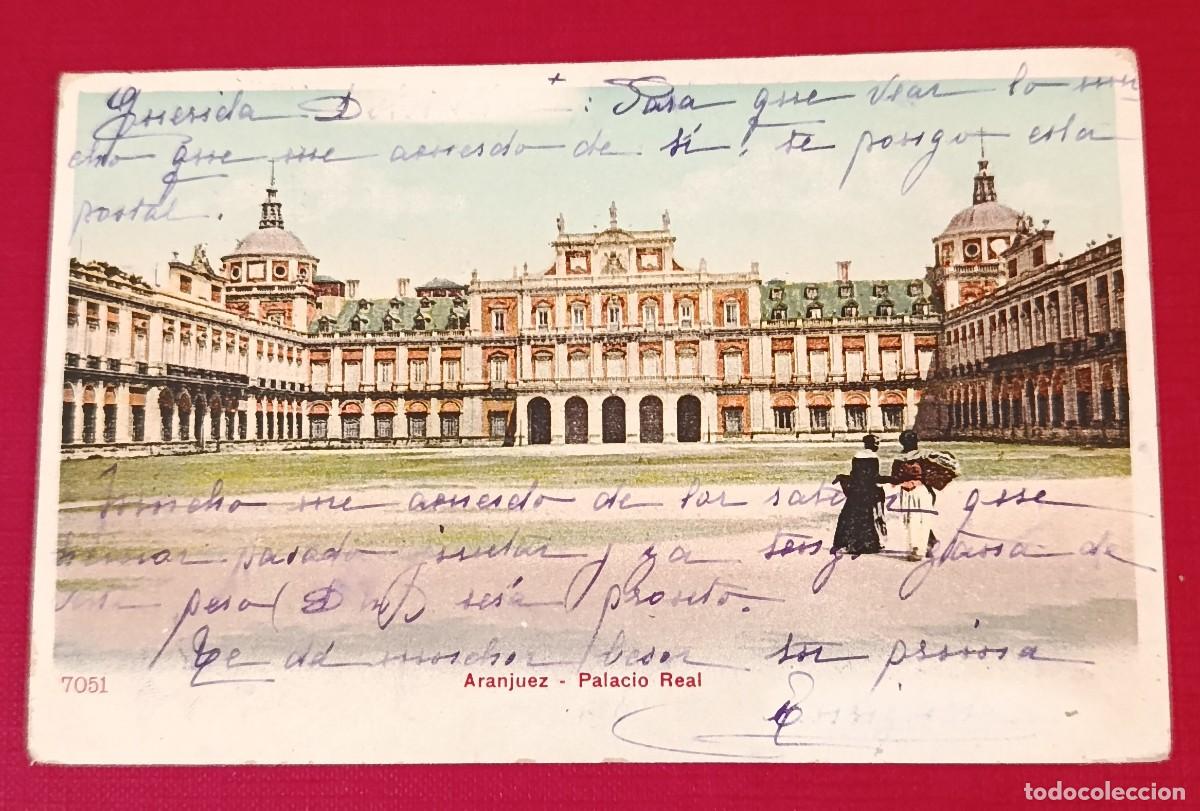 Querida : Para que vear lo mu
cho que me acuerdo de ti, te pongo esta
postal.
Mucho me acuerdo de los ratos que
hemos pasado juntas y ya tengo gana de
pero seá pronto.
Te dá muchos besos tu prima
7051
Aranjuez - Palacio Real
todocoleccion